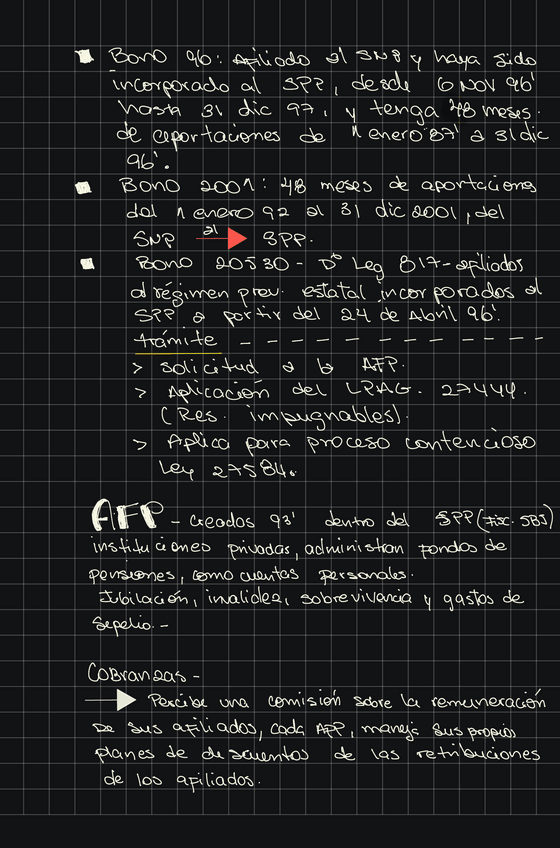 Bono 96: Afiliado al SNP y haya sido
incorporado al SPP, desde 6 NOV 96'
hasta 31 dic 97, y tenga 48 meses.
de aportaciones de 1 enero 87' a 31 dic
96'.
Bono 2001: 48 meses de aportaciones
del 1 enero 92 al 31 dic 2001, del
SNP al SPP.
Bono 20530 - D° Leg 817 - afiliados
al régimen prev. estatal incorporados al
SPP a partir del 24 de Abril 96'.
trámite - - - - - - - - - - - - -
> solicitud a la AFP.
> Aplicación del LPAG. 27444.
(Res. impugnables).
> Aplica para proceso contencioso
Ley 27584.
AFP - Creados 93' dentro del SPP (Fisc. SBS)
instituciones privadas, administran fondos de
pensiones, como cuentas personales.
Jubilación, invalidez, sobrevivencia y gastos de
sepelio. -
Cobranzas -
Percibe una comisión sobre la remuneración
de sus afiliados, cada AFP, maneja sus propios
planes de descuentos de las retribuciones
de los afiliados.